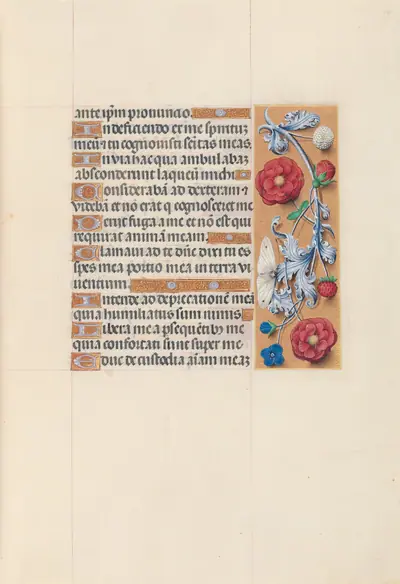 ante ip̄m pronuncio.
In deficiendo ex me spiritū
meū ⁊ tu cognouisti semitas meas.
In via hac qua ambulabā
absconderunt laqueū michi
Considerabā ad dexteram ⁊
videbā et nō erat q̄ cognosceret me
Perijt fuga a me et nō est qui
requirat animā meam.
Clamaui ad te dn̄e dixi tu es
spes mea portio mea in terra vi
uentium.
Intende ad dep̄cationē meā
quia humiliatus sum nimis.
Libera me a ꝑsequētibꝰ me
quia confortati sunt super me.
Educ de custodia aīam meā